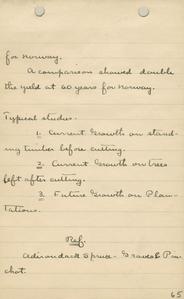 for Norway.
A comparison showed double
the yield at 60 years for Norway.
Typical studies.
1. Current Growth on stand-
ing timber before cutting.
2. Current Growth on trees
left after cutting.
3. Future Growth on Plan-
tations.
Ref.
Adirondack Spruce - Graves & Pin-
chot.
65